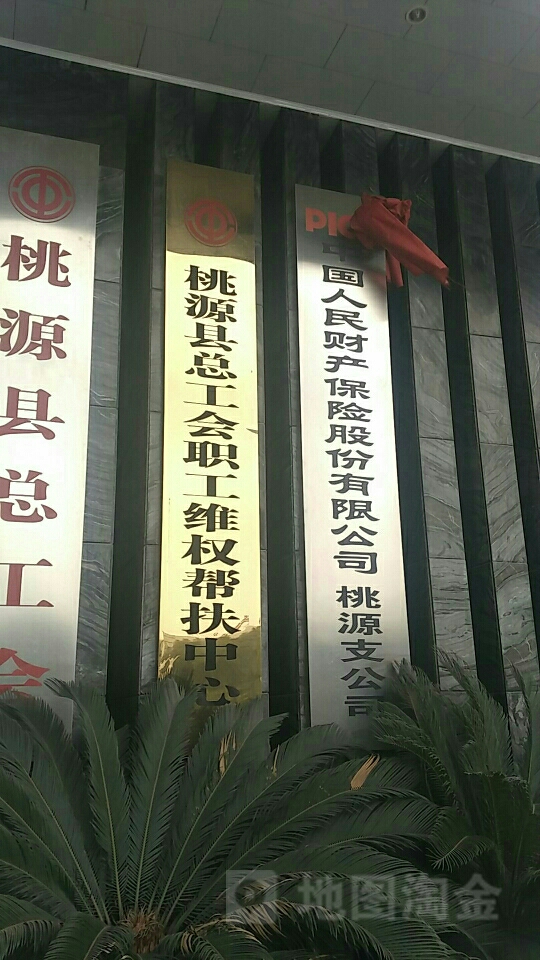 桃源县总工会
桃源县总工会职工维权帮扶中心
PIC
中国人民财产保险股份有限公司 桃源支公司
地图淘金